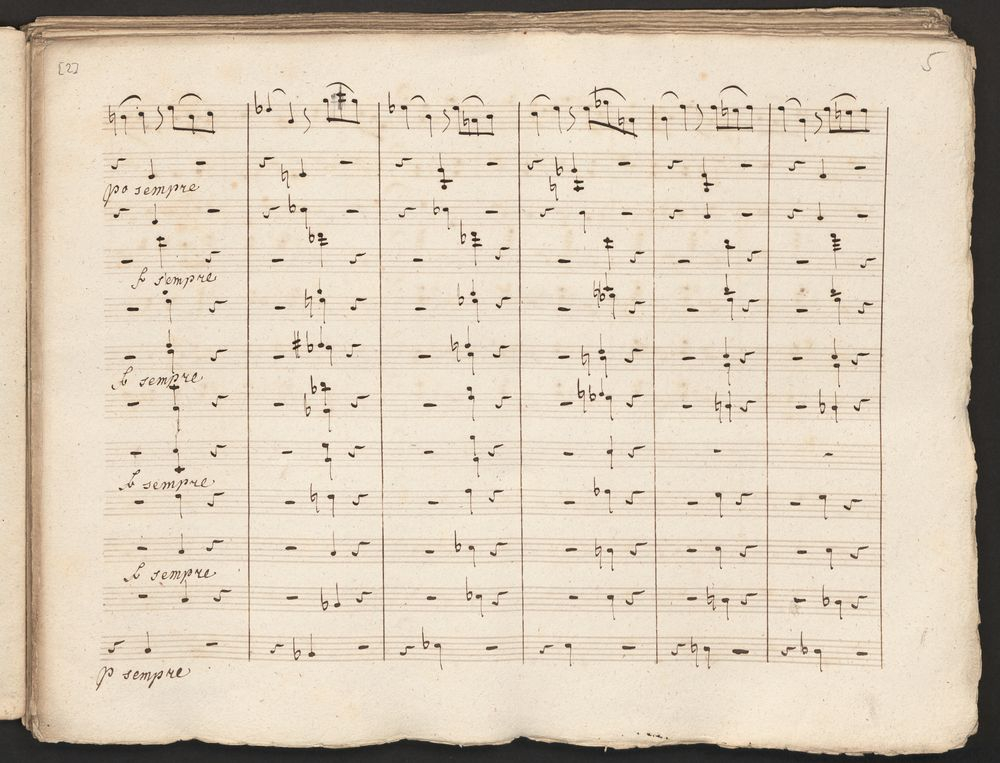 [2]
5
po sempre
f sempre
f sempre
f sempre
f sempre
p sempre